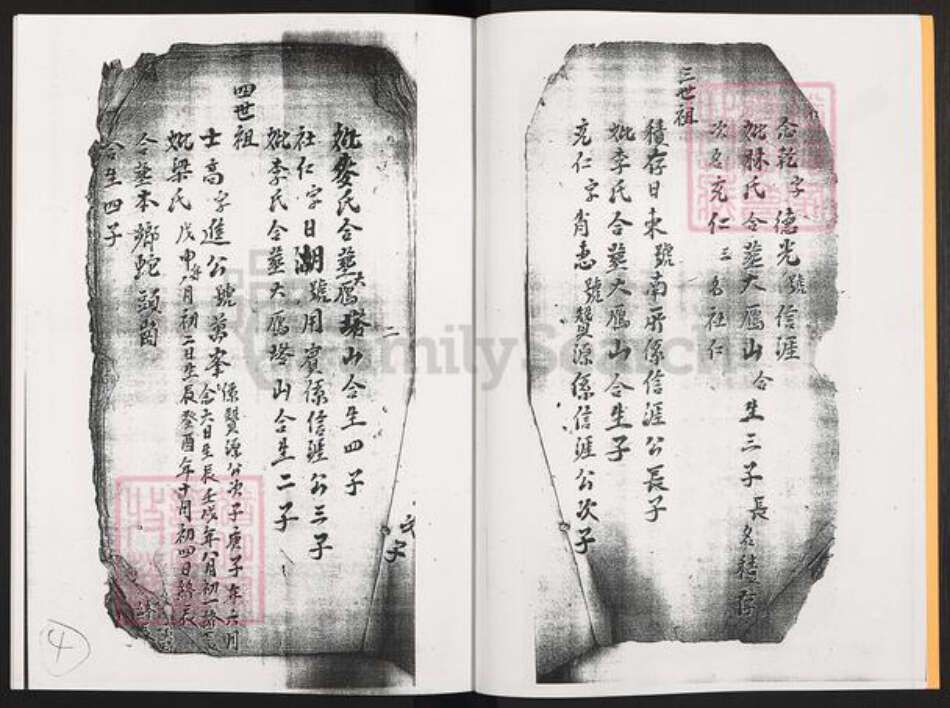 念乾字德光號信涯
妣林氏合塟大鴈山合生三子長名積存
次名充仁三名社仁
三世祖
積存日東號南所係信涯公長子
妣李氏合塟大鴈山合生子
充仁字肖惠號贊源係信涯公次子
妣麥氏合塟大鴈塔山合生四子
社仁字日湖號用賓係信涯公三子
妣李氏合塟大鴈塔山合生二子
四世祖
士高字進公號萬峯係贊源公次子庚子年六月
念六日生辰壬戌年八月初一終
妣梁氏戊申年八月初二日生辰癸酉年十月初四日終
合塟本鄉蛇頭崗
合生四子
二
4
FamilySearch